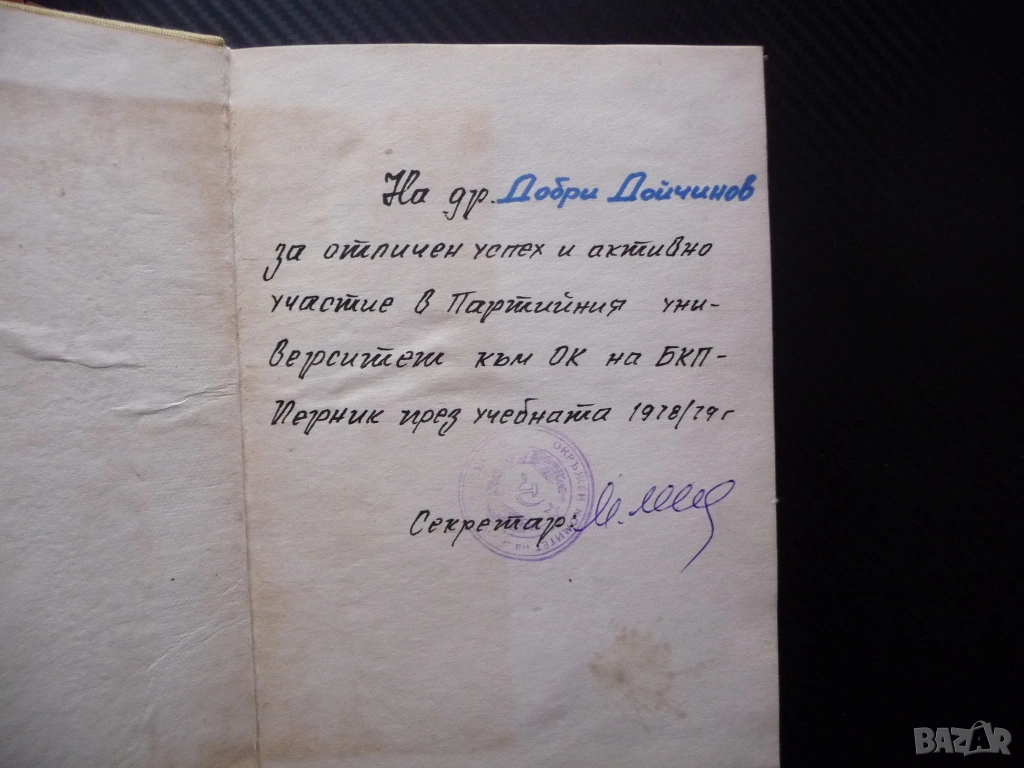 На др. Добри Дойчинов
за отличен успех и активно
участие в Партийния уни-
верситет към ОК на БКП-
Перник през учебната 1978/79 г
ОКРЪЖЕН КОМИТЕТ НА
Секретар:
BAZAR